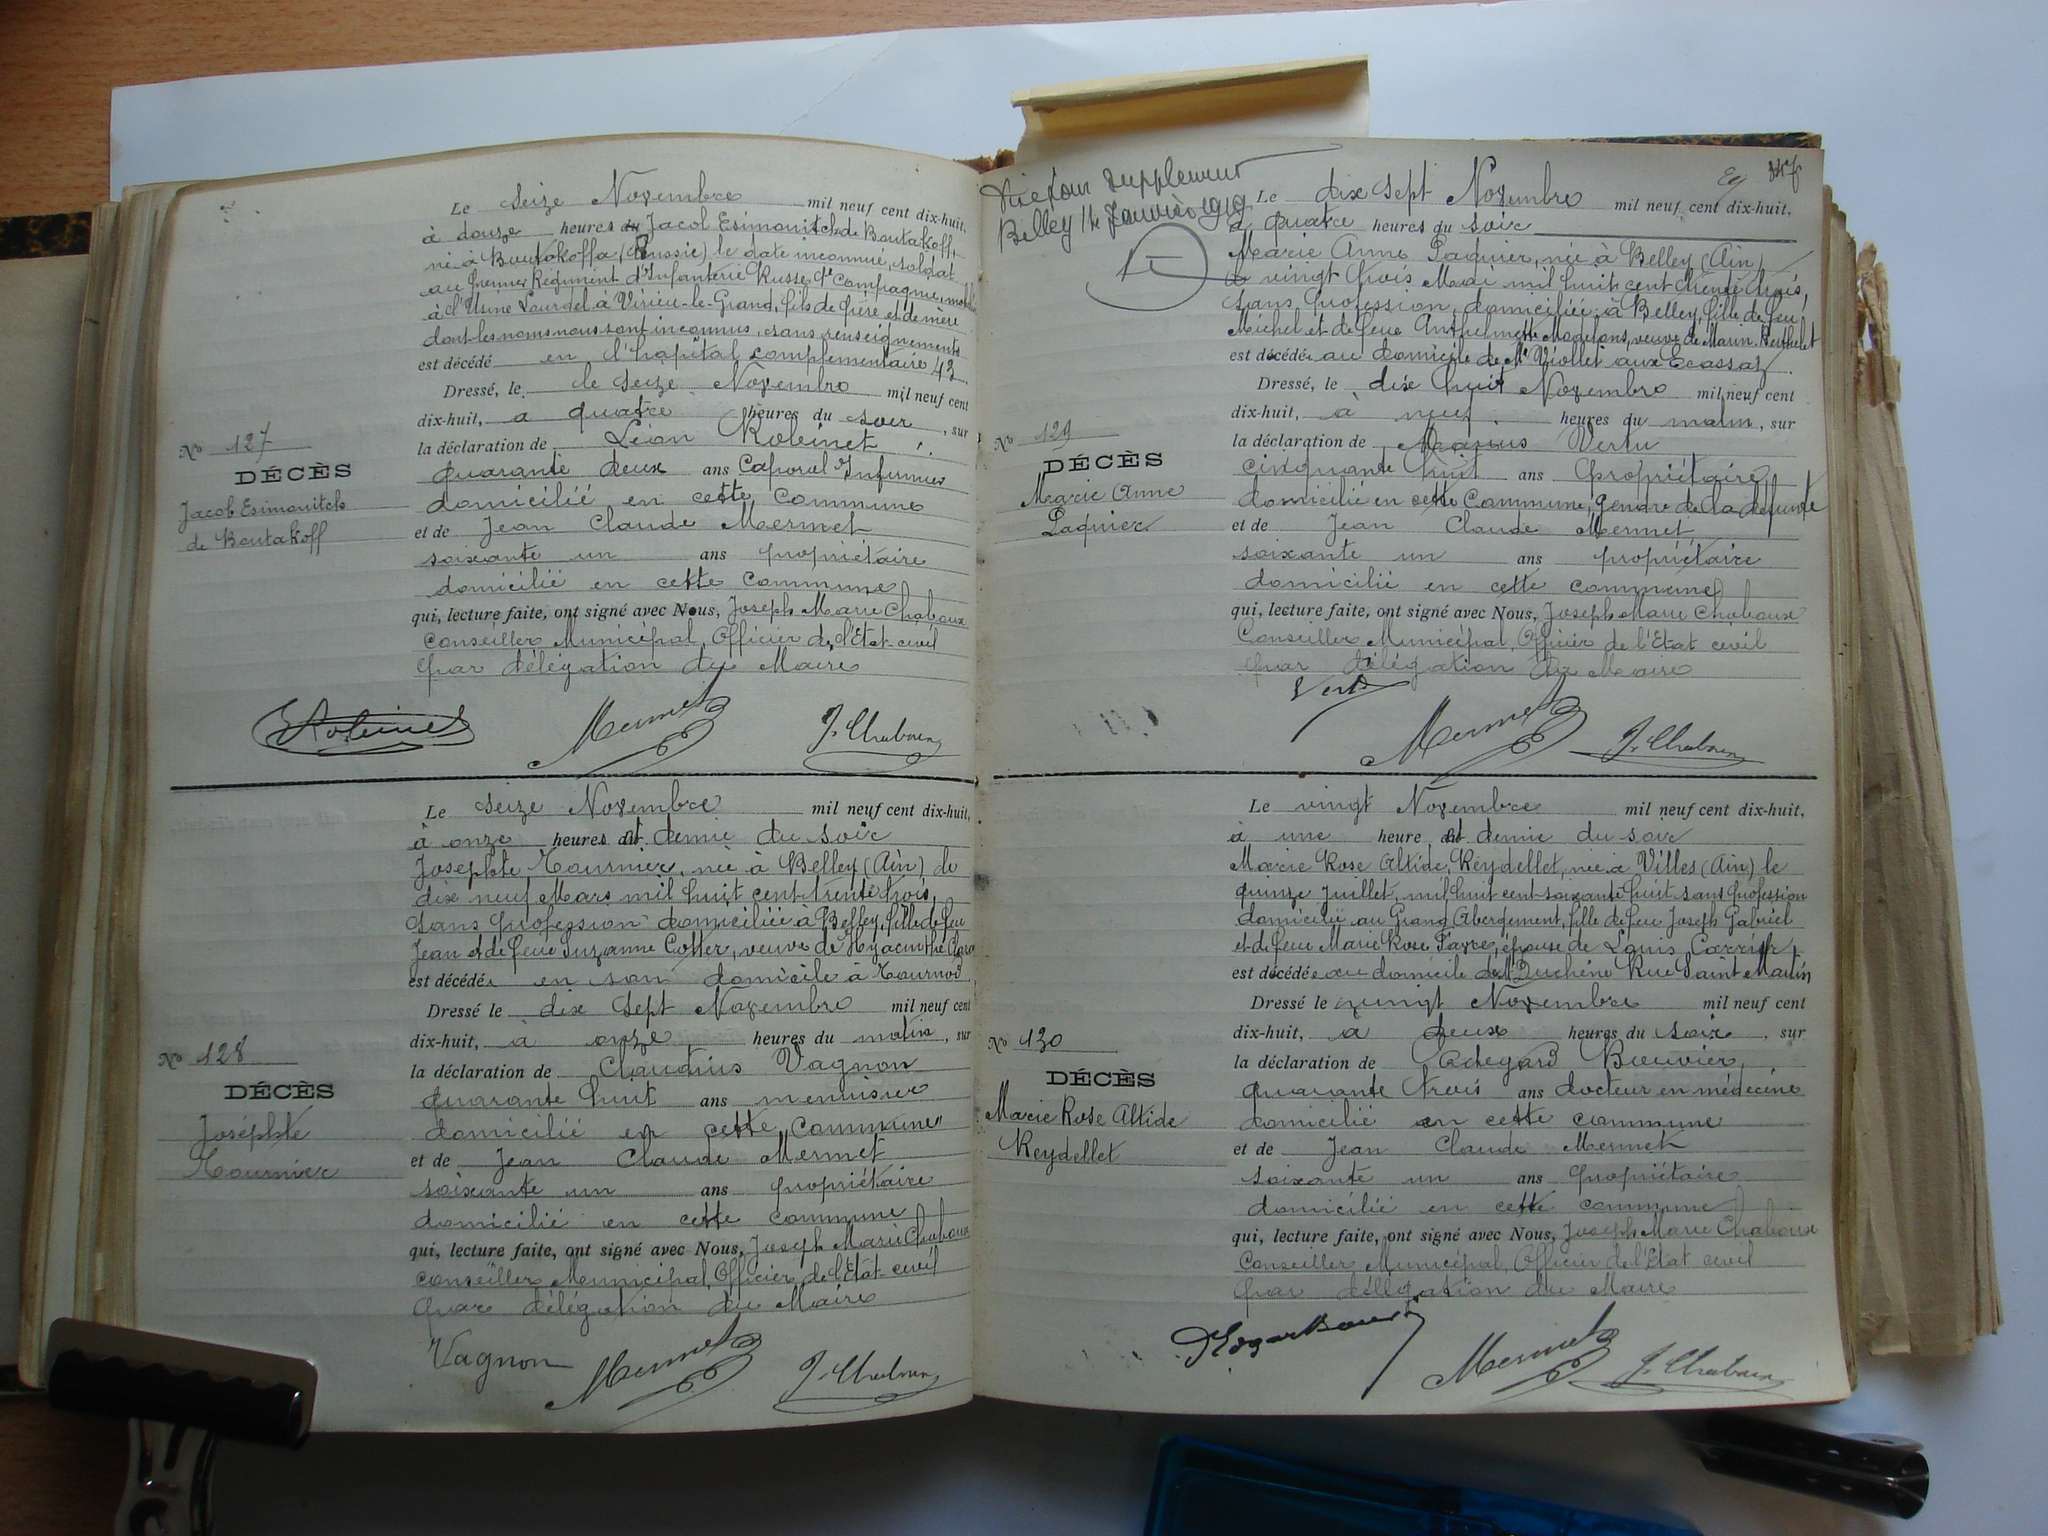 Le seize Novembre mil neuf cent dix-huit,
à douze heures du Jacob Esimonitch de Boutakoff,
né à Boutakoffa, (Russie) le date inconnue, soldat
au premier Régiment d'Infanterie Russe, 4e Compagnie,
à l'Usine Lourdel à Virieu-le-Grand, fils de père et de mère
dont les noms nous sont inconnus, sans renseignements
est décédé en l'hôpital complémentaire 43.
Dressé, le le seize Novembre mil neuf cent
dix-huit, à quatre heures du soir, sur
la déclaration de Léon Robinet,
quarante deux ans Caporal Infirmier
domicilié en cette commune
et de Jean Claude Mermet
soixante un ans propriétaire
domicilié en cette commune
qui, lecture faite, ont signé avec Nous, Joseph Marie Chaboux
Conseiller Municipal, Officier de l'Etat-civil
par délégation du Maire
No 127
DÉCÈS
Jacob Esimonitch
de Boutakoff
Robinet Mermet J. Chaboux
Le seize Novembre mil neuf cent dix-huit,
à onze heures et demie du soir
Josephte Tournier, née à Belley (Ain) le
dix neuf Mars mil huit cent trente trois,
sans profession domiciliée à Belley, fille de feu
Jean et de feue Suzanne Cotter, veuve de Hyacinthe
est décédée en son domicile à
Dressé le dix sept Novembre mil neuf cent
dix-huit, à onze heures du matin, sur
la déclaration de Claudius Vagnon
quarante huit ans menuisier
domicilié en cette commune
et de Jean Claude Mermet
soixante un ans propriétaire
domicilié en cette commune
qui, lecture faite, ont signé avec Nous, Joseph Marie Chaboux
Conseiller Municipal, Officier de l'Etat-civil
par délégation du Maire
No 128
DÉCÈS
Joséphte
Tournier
Vagnon Mermet J. Chaboux
supplément
Belley 14 Janvier 1919
Le dix sept Novembre mil neuf cent dix-huit,
à quatre heures du soir
Marie Anne Paquier, née à Belley (Ain)
le vingt trois Mai mil huit cent trente trois,
sans profession, domiciliée à Belley, fille de feu
Michel et de feue Anthelmette Magdelons, veuve de Marin Berthelet
est décédée au domicile de Mr Viollet aux Ecassaz.
Dressé, le dix huit Novembre mil neuf cent
dix-huit, à neuf heures du matin, sur
la déclaration de Marius Vertu
cinquante huit ans propriétaire
domicilié en cette Commune, gendre de la defunte
et de Jean Claude Mermet
soixante un ans propriétaire
domicilié en cette commune
qui, lecture faite, ont signé avec Nous, Joseph Marie Chaboux
Conseiller Municipal, Officier de l'Etat civil
par délégation du Maire
No 129
DÉCÈS
Marie Anne
Paquier
Mermet J. Chaboux
Le vingt Novembre mil neuf cent dix-huit,
à une heure et demie du soir
Marie Rose Altide Reydellet, née à Villes (Ain) le
quinze Juillet, mil huit cent soixante huit sans profession
domiciliée au Grand Abergement, fille de feu Joseph Gabriel
et de feue Marie Rose Favre, épouse de Louis Carrier,
est décédée au domicile de Mr Duchêne Rue Saint Martin
Dressé le vingt Novembre mil neuf cent
dix-huit, à deux heures du soir, sur
la déclaration de Edegard Bouvier,
quarante trois ans docteur en médecine
domicilié en cette commune
et de Jean Claude Mermet
soixante un ans propriétaire
domicilié en cette commune
qui, lecture faite, ont signé avec Nous, Joseph Marie Chaboux
Conseiller Municipal, Officier de l'Etat civil
par délégation du Maire
No 130
DÉCÈS
Marie Rose Altide
Reydellet
Mermet J. Chaboux